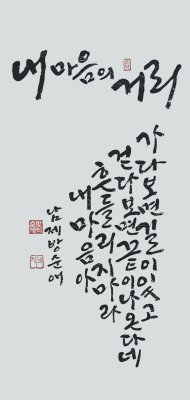 내 마음의 거리
가다보면길이있고
걷다보면끝이나온다네
흔들리지마라
내마음아
남제방순애